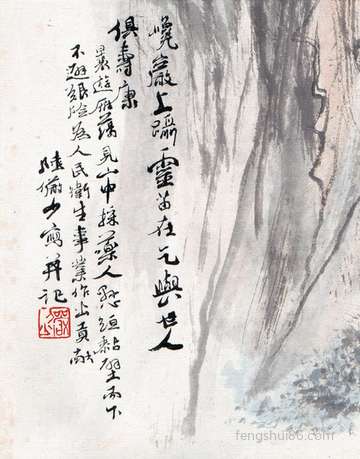 巉巖上躡靈苗在乞與世人
俱壽康
曩遊雁蕩見山中採藥人懸絙黏壁而下
不避艱險為人民衛生事業作出貢獻
陸儼少寫並記
fengshui86.com